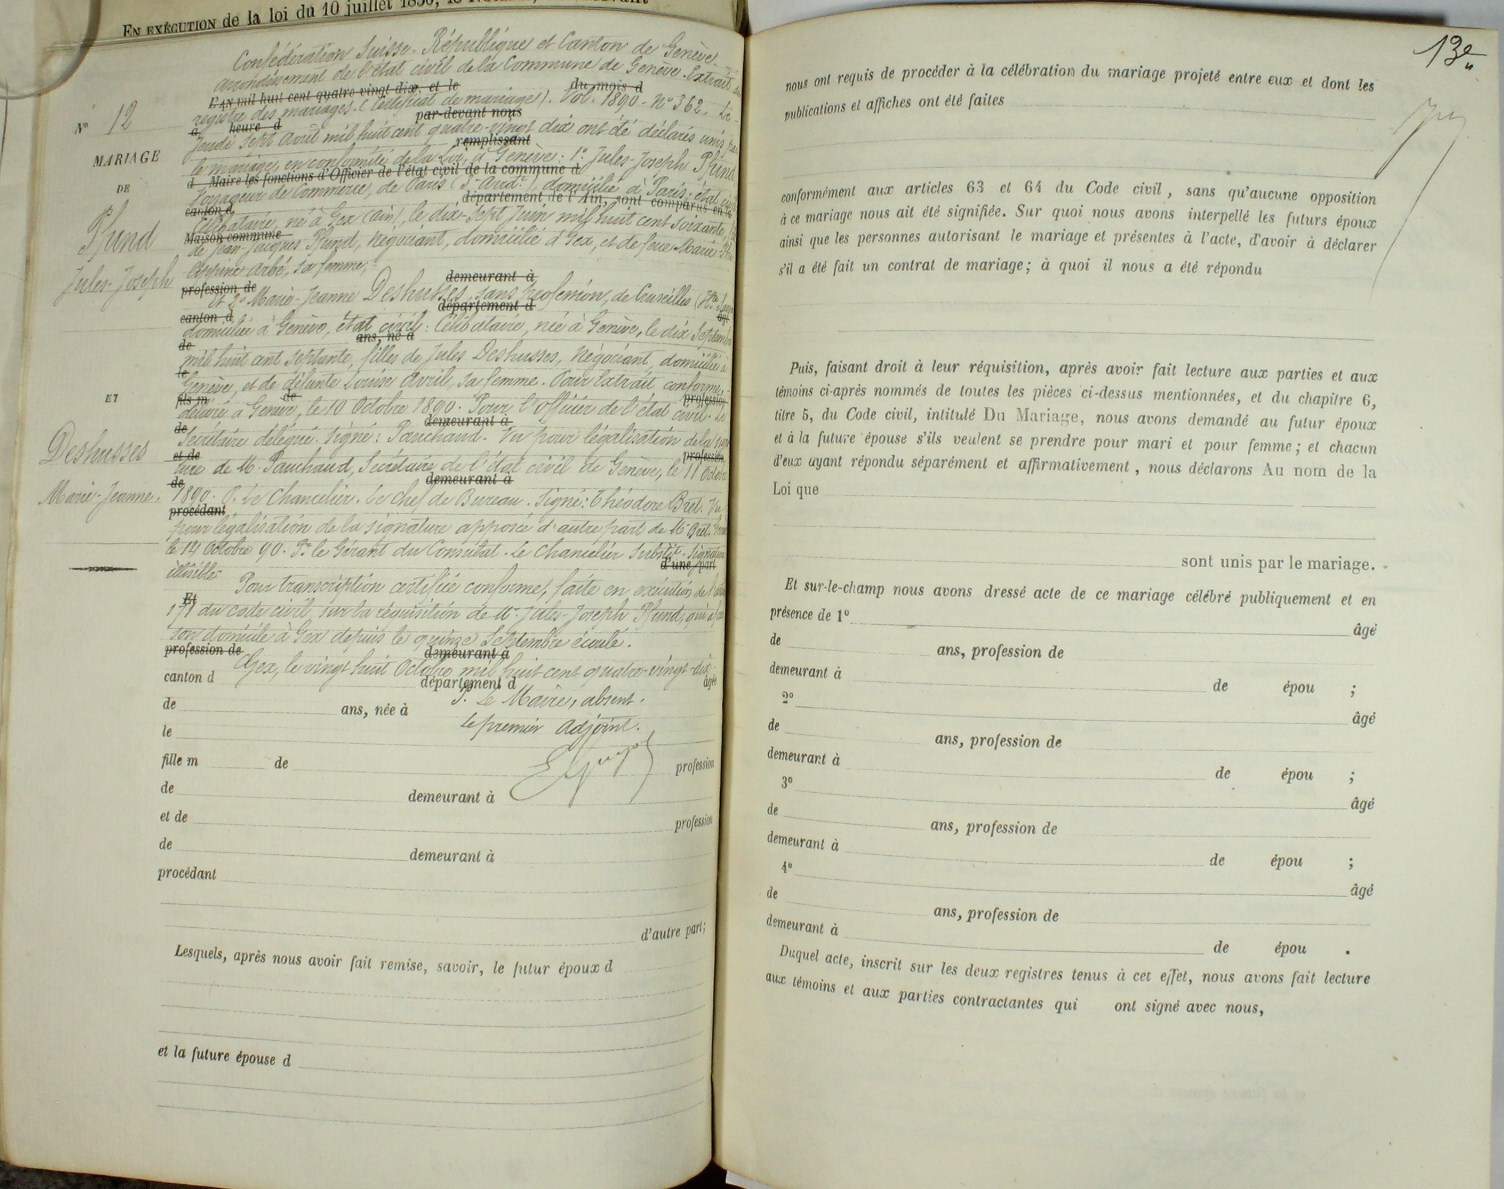 EN EXÉCUTION de la loi du 10 juillet 1850,
Confédération Suisse. République et Canton de Genève.
arrondissement de l'état civil de la Commune de Genève. Extrait du
L'AN mil huit cent quatre-vingt-dix, et le du mois d
registre des mariages. (Certificat de mariages). Vol. 1890. N° 362. Le
à heure d par-devant nous
Jeudi sept avril mil huit cent quatre-vingt dix ont été déclarés unis par
remplissant
le mariage, en conformité de la Loi, à Genève: 1° Jules-Joseph Pfund
d Maire les fonctions d'Officier de l'état civil de la commune d
Voyageur de Commerce, de Paris domicilié à Paris, état civil
canton d département de l'Ain, sont comparus en la
célibataire, né à Gex (Ain), le dix-sept Juin mil huit cent soixante
Maison commune
de Jean-Jacques Pfund, négociant, domicilié à Gex, et de feue Marie
Arbé, sa femme;
profession de demeurant à
et 2° Marie-Jeanne Deshusses, sans profession, de
canton d département d âgé
domiciliée à Genève, état civil: Célibataire, née à Genève, le dix Septembre
de ans, né à
mil huit cent septante, fille de Jules Deshusses, négociant, domicilié à
le
Genève, et de défunte Louise Avril, sa femme. Pour Extrait conforme,
fils m de profession
délivré à Genève, le 10 Octobre 1890. Pour l'officier de l'état civil. Le
de demeurant à
Secrétaire délégué. Signé: Pauchaud. Vu pour légalisation de la
et de profession
ture de M. Pauchaud, Secrétaire de l'état civil de Genève, le 11 Octobre
de demeurant à
1890. P. Le Chancelier. Le chef de Bureau. Signé: Théodore Bret. Vu
procédant
pour légalisation de la signature apposée d'autre part de M. Bret.
le 14 Octobre 90. Pr le Gérant du Consulat. Le Chancelier Substit. Signature
illisible. d'une part
Pour transcription certifiée conforme, faite en exécution de l'article
Et
171 du code civil, sur la réquisition de M. Jules-Joseph Pfund, qui a
son domicile à Gex depuis le quinze Septembre écoulé.
profession de demeurant à
Gex, le vingt huit Octobre mil huit cent quatre-vingt-dix
canton d département d âgée
P. Le Maire, absent.
de ans, née à
le premier Adjoint.
le
fille m de profession
de demeurant à
et de profession
de demeurant à
procédant
d'autre part;
Lesquels, après nous avoir fait remise, savoir, le futur époux d
et la future épouse d
N° 12
MARIAGE
DE
Pfund
Jules-Joseph
ET
Deshusses
Marie-Jeanne.
13e
nous ont requis de procéder à la célébration du mariage projeté entre eux et dont les
publications et affiches ont été faites
conformément aux articles 63 et 64 du Code civil, sans qu'aucune opposition
à ce mariage nous ait été signifiée. Sur quoi nous avons interpellé les futurs époux
ainsi que les personnes autorisant le mariage et présentes à l'acte, d'avoir à déclarer
s'il a été fait un contrat de mariage; à quoi il nous a été répondu
Puis, faisant droit à leur réquisition, après avoir fait lecture aux parties et aux
témoins ci-après nommés de toutes les pièces ci-dessus mentionnées, et du chapitre 6,
titre 5, du Code civil, intitulé Du Mariage, nous avons demandé au futur époux
et à la future épouse s'ils veulent se prendre pour mari et pour femme; et chacun
d'eux ayant répondu séparément et affirmativement, nous déclarons Au nom de la
Loi que
sont unis par le mariage.
Et sur-le-champ nous avons dressé acte de ce mariage célébré publiquement et en
présence de 1° âgé
de ans, profession de
demeurant à de épou ;
2° âgé
de ans, profession de
demeurant à de épou ;
3° âgé
de ans, profession de
demeurant à de épou ;
4° âgé
de ans, profession de
demeurant à de épou .
Duquel acte, inscrit sur les deux registres tenus à cet effet, nous avons fait lecture
aux témoins et aux parties contractantes qui ont signé avec nous,